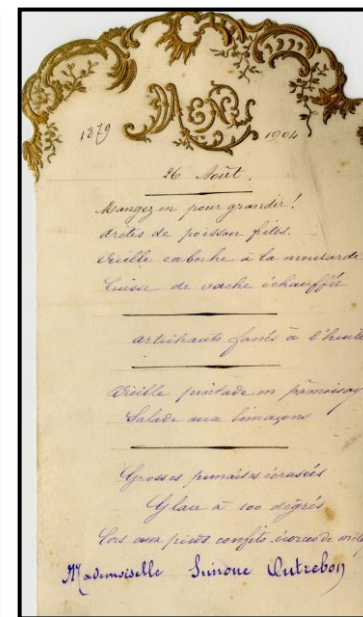 MENU
1879 1904
26 Août.
Mangez en pour grandir!
arêtes de poisson frites.
Vieille caboche à la moutarde
Cuisse de vache échauffée
artichauts fanés à l'huile
Vieille pintade en pâmoison
Salade aux limaçons
Grosses punaises écrasées
Glace à 100 degrés
Cors aux pieds confits écorces de
Mademoiselle Simone Outrebon